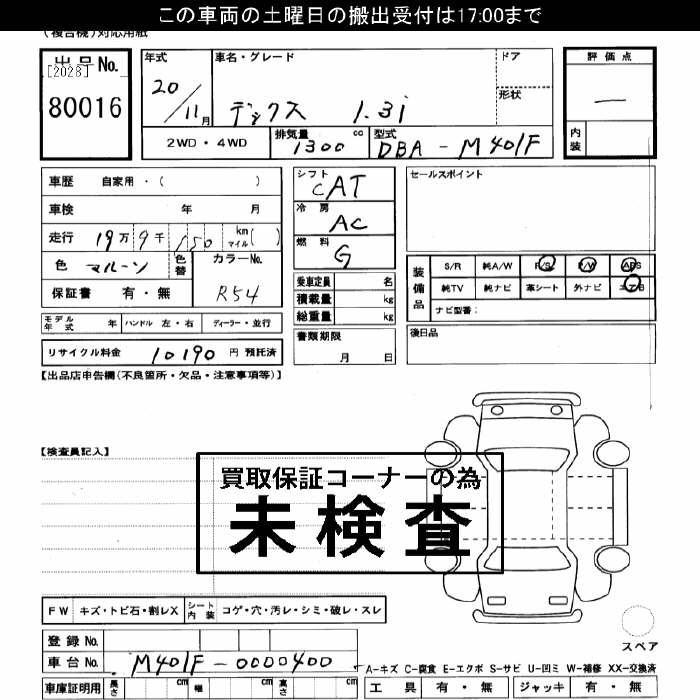 この車両の土曜日の搬出受付は17:00まで
(複合機)対応用紙
出品No.
[2028]
80016
年式
20/11月
車名・グレード
デックス 1.3i
ドア
形状
評価点
―
内装
2WD・4WD
排気量
1300 cc
型式
DBA-M401F
車歴 自家用・( )
車検 年 月
走行 19万9千150 km マイル( )
色 マルーン
色替
カラーNo.
R54
保証書 有・無
シフト
CAT
冷房
AC
燃料
G
乗車定員 名
積載量 kg
総重量 kg
書類期限
月 日
セールスポイント
装備品
S/R 純A/W P/S P/W ABS
純TV 純ナビ 革シート 外ナビ エアB
ナビ型番:
後日品
モデル年式 年 ハンドル 左・右 ディーラー・並行
リサイクル料金 10190 円 預託済
【出品店申告欄(不良箇所・欠品・注意事項等)】
【検査員記入】
買取保証コーナーの為
未検査
FW キズ・トビ石・割レX
シート内装 コゲ・穴・汚レ・シミ・破レ・スレ
スペア
登録No.
車台No. M401F-0000400
A-キズ C-腐食 E-エクボ S-サビ U-凹ミ W-補修 XX-交換済
車庫証明用 長さ cm 幅 cm 高さ cm
工具 有・無 ジャッキ 有・無